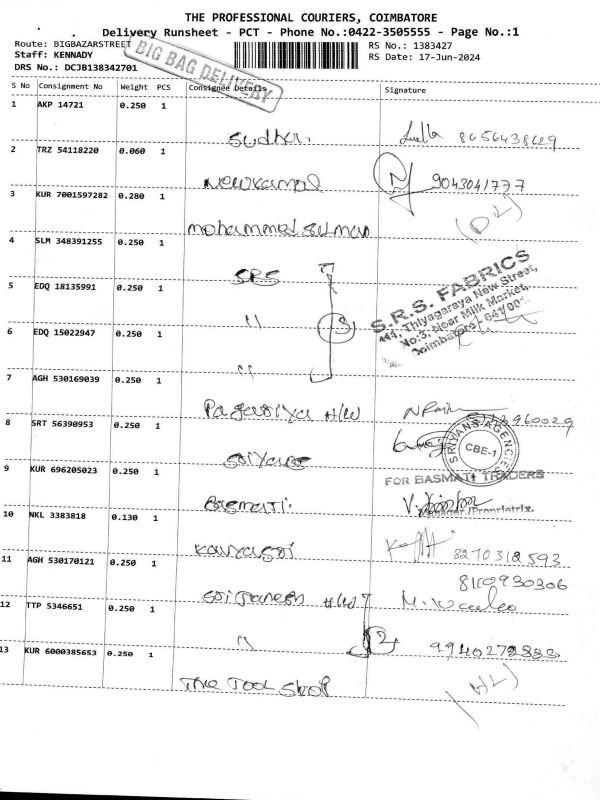 THE PROFESSIONAL COURIERS, COIMBATORE
Delivery Runsheet - PCT - Phone No.:0422-3505555 - Page No.:1
Route: BIGBAZARSTREET
RS No.: 1383427
Staff: KENNADY
RS Date: 17-Jun-2024
DRS No.: DCJB138342701
BIG BAG DELIVERY
S No Consignment No Weight PCS Consignee Details Signature
1 AKP 14721 0.250 1
Sudhan 8656438629
2 TRZ 54118220 0.060 1
Newkamal 9043041777
3 KUR 7001597282 0.280 1
mohammed Salman
4 SLM 348391255 0.250 1
SRS
S.R.S. FABRICS
444, Thiyagaraya New Street,
No:3, Near Milk Market,
5 EDQ 18135991 0.250 1
"
3
6 EDQ 15022947 0.250 1
"
7 AGH 530169039 0.250 1
Pagariya H/W
8 SRT 56390953 0.250 1
SRIYANS AGENCIES
CBE-1
Sriyans
9 KUR 696205023 0.250 1
FOR BASMATI TRADERS
Basmati
Manager/Proprietrix.
10 NKL 3383818 0.130 1
8270312593
11 AGH 530170121 0.250 1
8110930306
Sri Ganesh H/W
12 TTP 5346651 0.250 1
" 2
13 KUR 6000385653 0.250 1
The Tool Shop